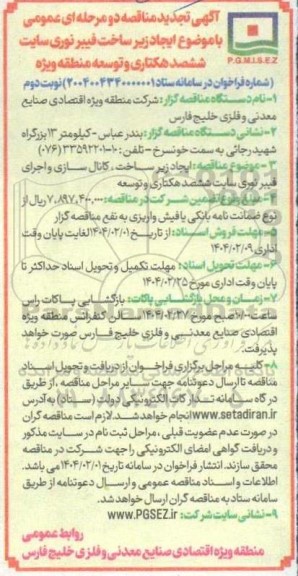 آگهی تجدید مناقصه دو مرحله ای عمومی
با موضوع ایجاد زیر ساخت فیبر نوری سایت
ششصد هکتاری و توسعه منطقه ویژه
P.G.M.I.S.E.Z
(شماره فراخوان در سامانه ستاد ۲۰۰۴۰۰۴۳۴۰۰۰۰۰۰۱) نوبت دوم
۱- نام دستگاه مناقصه گزار: شرکت منطقه ویژه اقتصادی صنایع
معدنی و فلزی خلیج فارس
۲- نشانی دستگاه مناقصه گزار: بندرعباس - کیلومتر ۱۳ بزرگراه
شهید رجائی به سمت خونسرخ - تلفن: ۱۰-۳۳۵۹۲۲۰۱ (۰۷۶)
۳- موضوع مناقصه: ایجاد زیر ساخت، کانال سازی و اجرای
فیبر نوری سایت ششصد هکتاری و توسعه
۴- مبلغ و نوع تضمین شرکت در مناقصه: ۷,۸۹۷,۴۰۰,۰۰۰ ریال از
نوع ضمانت نامه بانکی یا فیش واریزی به نفع مناقصه گزار
۵- مهلت فروش اسناد: از تاریخ ۱۴۰۴/۰۲/۰۱ لغایت پایان وقت
اداری ۱۴۰۴/۰۲/۰۹
۶- مهلت تحویل اسناد: مهلت تکمیل و تحویل اسناد حداکثر تا
پایان وقت اداری مورخ ۱۴۰۴/۰۲/۲۵
۷- زمان و محل بازگشایی پاکات: بازگشایی پاکات راس
ساعت ۱۰/۰۰ صبح مورخ ۱۴۰۴/۰۲/۲۷ سالن کنفرانس منطقه ویژه
اقتصادی صنایع معدنی و فلزی خلیج فارس صورت خواهد
پذیرفت.
۸- کلیه مراحل برگزاری فراخوان از دریافت و تحویل اسناد
مناقصه تا ارسال دعوتنامه جهت سایر مراحل مناقصه، از طریق
درگاه سامانه تدارکات الکترونیکی دولت (ستاد) به آدرس
www.setadiran.ir انجام خواهد شد. لازم است مناقصه گران
در صورت عدم عضویت قبلی، مراحل ثبت نام در سایت مذکور
و دریافت گواهی امضای الکترونیکی را جهت شرکت در مناقصه
محقق سازند. انتشار فراخوان در سامانه تاریخ ۱۴۰۴/۰۲/۰۱ می باشد.
اطلاعات و اسناد مناقصه عمومی و ارسال دعوتنامه از طریق
سامانه ستاد به مناقصه گران ارسال خواهد شد.
۹- نشانی سایت شرکت: www.PGSEZ.ir
روابط عمومی
منطقه ویژه اقتصادی صنایع معدنی و فلزی خلیج فارس